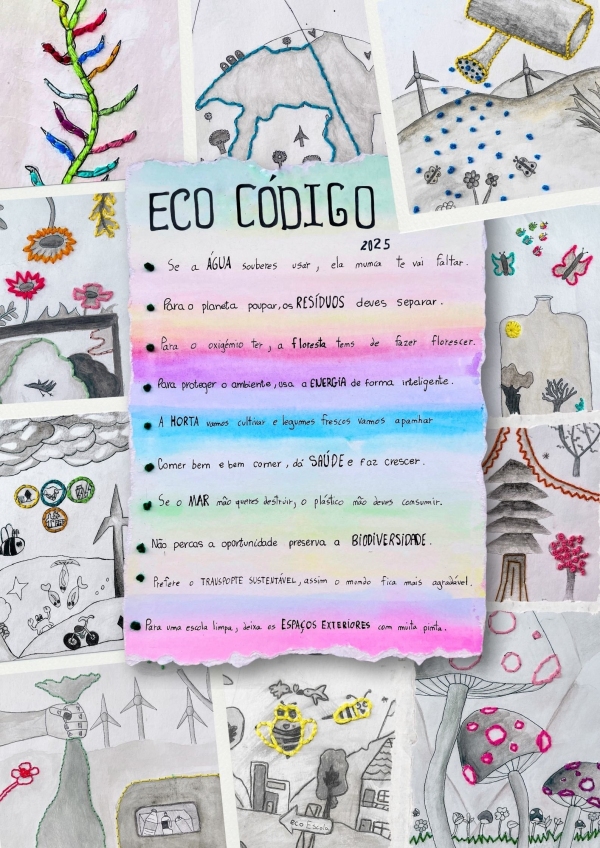 ECO CÓDIGO
2025
Se a ÁGUA souberes usar, ela nunca te vai faltar.
Para o planeta poupar, os RESÍDUOS deves separar.
Para o oxigénio ter, a floresta tens de fazer florescer.
Para proteger o ambiente, usa a ENERGIA de forma inteligente.
A HORTA vamos cultivar e legumes frescos vamos apanhar
Comer bem e bem comer, dá SAÚDE e faz crescer.
Se o MAR não queres destruir, o plástico não deves consumir.
Não percas a oportunidade preserva a BIODIVERSIDADE.
Prefere o TRANSPORTE SUSTENTÁVEL, assim o mundo fica mais agradável.
Para uma escola limpa, deixa os ESPAÇOS EXTERIORES com muita pinta.
eco Escola